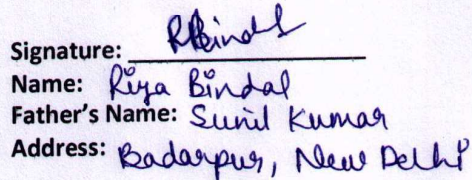 Signature: RBindal
Name: Riya Bindal
Father's Name: Sunil Kumar
Address: Badarpur, New Delhi